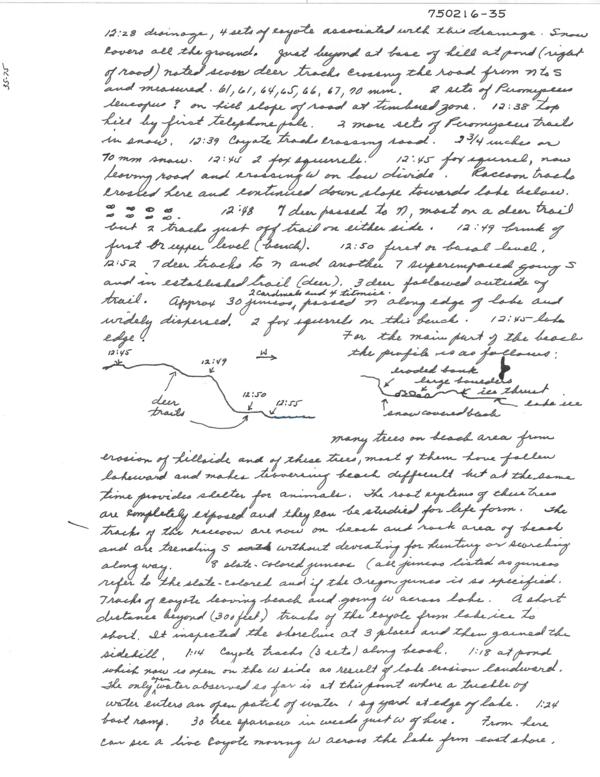 750216-35
35-75
12:28 drainage, 4 sets of coyote associated with this drainage. Snow
covers all the ground. Just beyond at base of hill at pond (right
of road) noted seven deer tracks crossing the road from N to S
and measured. 61, 61, 64, 65, 66, 67, 70 mm. 2 sets of Peromyscus
leucopus? on hill slope of road at timbered zone. 12:38 top
hill by first telephone pole. 2 more sets of Peromyscus trails
in snow. 12:39 Coyote tracks crossing road. 2 3/4 inches or
70 mm snow. 12:44 2 fox squirrels. 12:45 fox squirrel, now
leaving road and crossing W on low divide. Raccoon tracks
crossed here and continued down slope towards lake below.
12:48 7 deer passed to N, most on a deer trail
but 2 tracks just off trail on either side. 12:49 brink of
first or upper level (bench). 12:50 first or basal level.
12:52 7 deer tracks to N and another 7 superimposed going S
and in established trail (deer). 3 deer followed outside of
2 cardinals and 4 titmice.
trail. Approx 30 juncos, passed N along edge of lake and
widely dispersed. 2 fox squirrels on this bench. 12:45 lake
edge. For the main part of the beach
the profile is as follows:
12:45
12:49
12:50
12:55
deer
trails
W
eroded bank
large boulders
ice thrust
lake ice
snow covered beach
many trees on beach area from
erosion of hillside and of these trees, most of them have fallen
lakeward and makes traversing beach difficult but at the same
time provides shelter for animals. The root systems of these trees
are completely exposed and they can be studied for life form. The
tracks of the raccoon are now on beach and rock area of beach
and are trending S without deviating for hunting or searching
along way. 8 slate-colored juncos (all juncos listed as juncos
refer to the slate-colored and if the Oregon junco is so specified.
Tracks of coyote leaving beach and going W across lake. A short
distance beyond (300 feet) tracks of the coyote from lake ice to
short. It inspected the shoreline at 3 places and then gained the
sidehill. 1:14 Coyote tracks (3 sets) along beach. 1:18 at pond
which now is open on the W side as result of lake erosion landward.
The only open water observed so far is at this point where a trickle of
water enters an open patch of water 1 sq yard at edge of lake. 1:24
boat ramp. 30 tree sparrows in weeds just W of here. From here
can see a live coyote moving W across the lake from east shore.